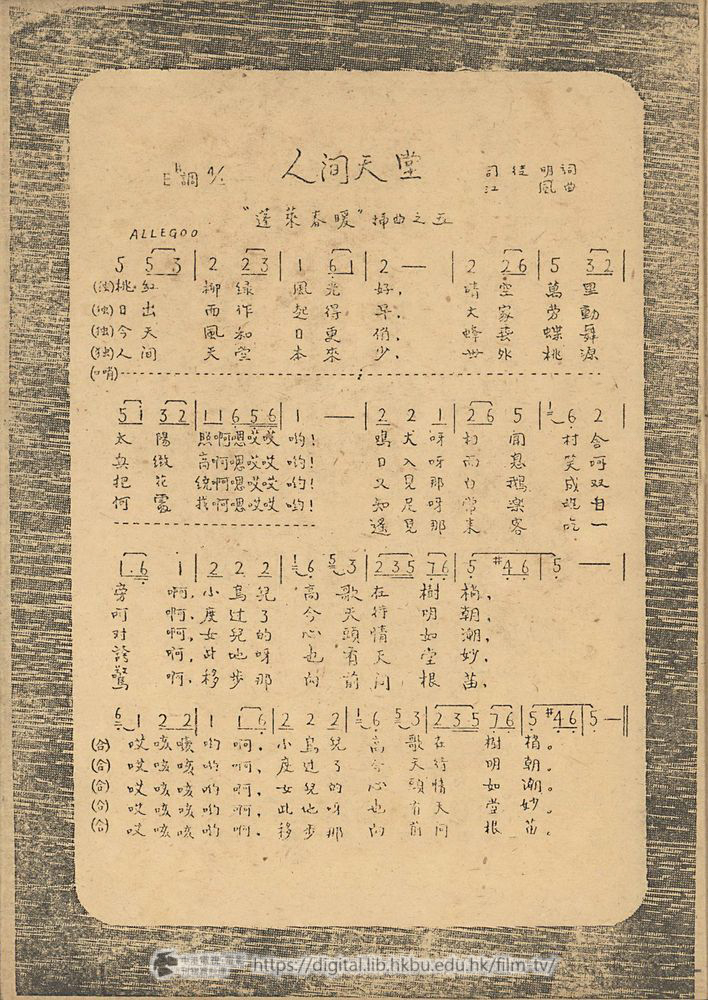 人间天堂
E♭調 4/4
司徒明詞
江風曲
"蓬萊春暖"插曲之五
ALLEGOO
5 5 3 | 2 2 3 | 1 6 1 | 2 — | 2 2 6 | 5 3 2 |
(独)桃 红 柳 绿 風 光 好, 晴 空 萬 里
(独)日 出 而 作 起 得 早, 大 家 勞 動
(独)今 天 風 和 日 更 俏, 蜂 藝 蝶 舞
(独)人 间 天 堂 本 來 少, 世 外 桃 源
(口哨)
5 1 3 2 | 1 1 6 5 6 | 1 — | 2 2 1 | 2 6 5 | 1 6 2 |
太 陽 照啊嗯哎哎 哟! 鳴 犬 呀 村
高啊嗯哎哎 哟! 日 入 呀 而 息 笑 呵
把 花 绕啊嗯哎哎 哟! 又 見 那 白 鵝 成 双
何 處 找啊嗯哎哎 哟! 知 足 呀 常 樂
遙 見 那 來 客 吃 一
1. 6 1 | 2 2 2 | 1 6 5 3 | 2 3 5 7 6 | 5 #4 6 | 5 — |
旁 啊, 小 鳥 兒 高 歌 在 樹 梢,
呵 啊, 度 过 了 今 天 待 明 朝,
对 啊, 女 兒 的 心 頭 情 如 潮,
誇 啊, 此 地 呀 也 有 天 堂 妙,
驚 啊, 移 步 那 向 前 问 根 苗,
6 1 2 2 | 1 1 6 | 2 2 2 | 1 6 5 3 | 2 3 5 7 6 | 5 #4 6 | 5 — ‖
(合) 哎 咳 咳 哟 啊, 小 鳥 兒 高 歌 在 樹 梢。
(合) 哎 咳 咳 哟 啊, 度 过 了 今 天 待 明 朝。
(合) 哎 咳 咳 哟 啊, 女 兒 的 心 頭 情 如 潮。
(合) 哎 咳 咳 哟 啊, 此 地 呀 也 有 天 堂 妙。
(合) 哎 咳 咳 哟 啊, 移 步 那 向 前 问 根 苗。
https://digital.lib.hkbu.edu.hk/film-tv/